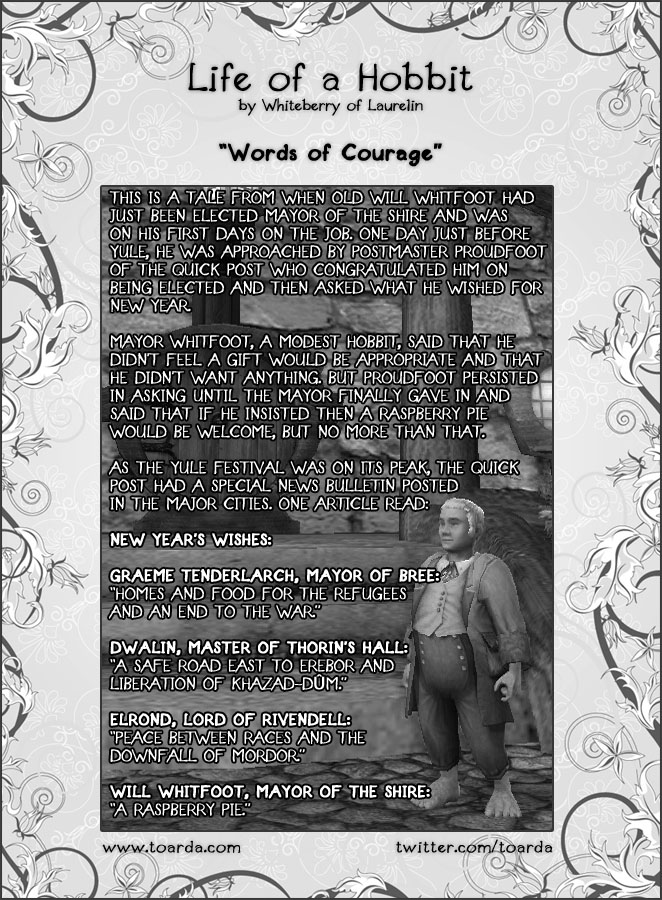 Life of a Hobbit
by Whiteberry of Laurelin
"Words of Courage"
THIS IS A TALE FROM WHEN OLD WILL WHITFOOT HAD
JUST BEEN ELECTED MAYOR OF THE SHIRE AND WAS
ON HIS FIRST DAYS ON THE JOB. ONE DAY JUST BEFORE
YULE, HE WAS APPROACHED BY POSTMASTER PROUDFOOT
OF THE QUICK POST WHO CONGRATULATED HIM ON
BEING ELECTED AND THEN ASKED WHAT HE WISHED FOR
NEW YEAR.
MAYOR WHITFOOT, A MODEST HOBBIT, SAID THAT HE
DIDN'T FEEL A GIFT WOULD BE APPROPRIATE AND THAT
HE DIDN'T WANT ANYTHING. BUT PROUDFOOT PERSISTED
IN ASKING UNTIL THE MAYOR FINALLY GAVE IN AND
SAID THAT IF HE INSISTED THEN A RASPBERRY PIE
WOULD BE WELCOME, BUT NO MORE THAN THAT.
AS THE YULE FESTIVAL WAS ON ITS PEAK, THE QUICK
POST HAD A SPECIAL NEWS BULLETIN POSTED
IN THE MAJOR CITIES. ONE ARTICLE READ:
NEW YEAR'S WISHES:
GRAEME TENDERLARCH, MAYOR OF BREE:
"HOMES AND FOOD FOR THE REFUGEES
AND AN END TO THE WAR."
DWALIN, MASTER OF THORIN'S HALL:
"A SAFE ROAD EAST TO EREBOR AND
LIBERATION OF KHAZAD-DÛM."
ELROND, LORD OF RIVENDELL:
"PEACE BETWEEN RACES AND THE
DOWNFALL OF MORDOR."
WILL WHITFOOT, MAYOR OF THE SHIRE:
"A RASPBERRY PIE."
www.toarda.com
twitter.com/toarda